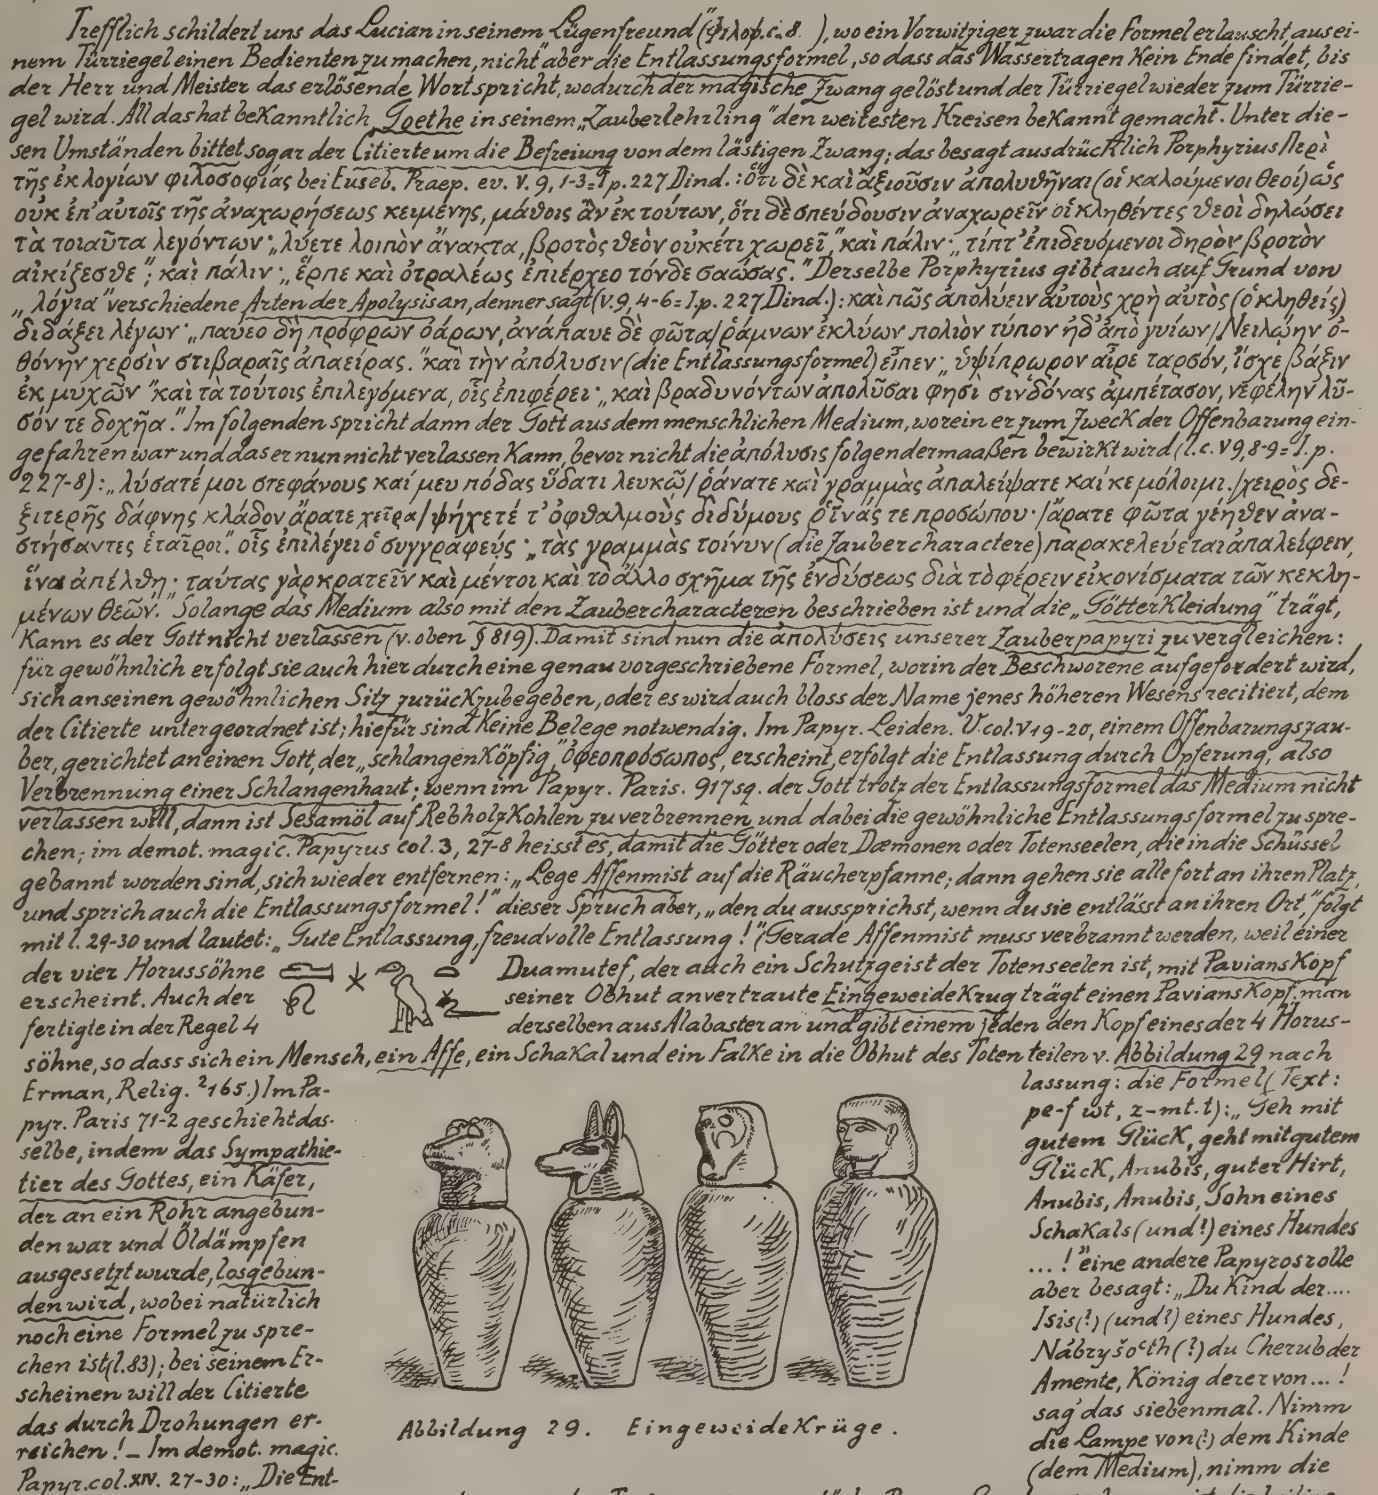 Trefflich schildert uns das Lucian in seinem Lügenfreund (Φιλοψ. c. 8. ), wo ein Vorwitziger zwar die Formel erlauscht, aus ei-
nem Türriegel einen Bedienten zu machen, nicht aber die Entlassungsformel, so dass das Wassertragen kein Ende findet, bis
der Herr und Meister das erlösende Wort spricht, wodurch der magische Zwang gelöst und der Türriegel wieder zum Türrie-
gel wird. All das hat bekanntlich Goethe in seinem „Zauberlehrling“ den weitesten Kreisen bekannt gemacht. Unter die-
sen Umständen bittet sogar der Citierte um die Befreiung von dem lästigen Zwang; das besagt ausdrücklich Porphyrius Περὶ
τῆς ἐκ λογίων φιλοσοφίας bei Euseb. Praep. ev. V. 9, 1-3 = I p. 227 Dind.: ὅτι δὲ καὶ ἀξιοῦσιν ἀπολυθῆναι (οἱ καλούμενοι θεοί) ὡς
οὐκ ἐπ' αὐτοῖς τῆς ἀναχωρήσεως κειμένης, μάθοις ἂν ἐκ τούτων, ὅτι δὲ σπεύδουσιν ἀναχωρεῖν οἱ κληθέντες θεοὶ δηλώσει
τὰ τοιαῦτα λεγόντων· „λύετε λοιπὸν ἄνακτα, βροτὸς θεὸν οὐκέτι χωρεῖ,“ καὶ πάλιν· „τίπτ' ἐπιδευόμενοι δηρὸν βροτὸν
αἰκίζεσθε“; καὶ πάλιν· „ἕρπε καὶ ὀτραλέως ἐπιέρχεο τόνδε σαώσας.“ Derselbe Porphyrius gibt auch auf Grund von
„λόγια“ verschiedene Arten der Apolysis an, denn er sagt (V. 9, 4-6 = I. p. 227 Dind.): καὶ πῶς ἀπολύειν αὐτοὺς χρὴ αὐτὸς (ὁ κληθείς)
διδάξει λέγων· „παύεο δὴ πρόφρων ὀάρων, ἀνάπαυε δὲ φῶτα/ῥάμνων ἐκλύων πολιὸν τύπον ἠδ' ἀπὸ γυίων/Νειλῴην ὀ-
θόνην χερσὶν στιβαραῖς ἀπαείρας.“ καὶ τὴν ἀπόλυσιν (die Entlassungsformel) εἶπεν· „ὑψίπρωρον αἶρε ταρσόν, ἴσχε βάξιν
ἐκ μυχῶν“ καὶ τὰ τούτοις ἐπιλεγόμενα, οἷς ἐπιφέρει· „καὶ βραδυνόντων ἀπολῦσαι φησὶ σινδόνας ἀμπέτασον, νεφέλην λῦ-
σόν τε δοχῆα.“ Im folgenden spricht dann der Gott aus dem menschlichen Medium, worein er zum Zweck der Offenbarung ein-
gefahren war und das er nun nicht verlassen kann, bevor nicht die ἀπόλυσις folgendermaaßen bewirkt wird (l. c. V 9, 8-9 = I. p.
227-8): „λύσατέ μοι στεφάνους καί μευ πόδας ὕδατι λευκῶ/ῥάνατε καὶ γραμμὰς ἀπαλείψατε καί κε μόλοιμι./χειρὸς δε-
ξιτερῆς δάφνης κλάδον ἄρατε χεῖρα/ψήχετέ τ' ὀφθαλμοὺς διδύμους ῥῖνάς τε προσώπου·/ἄρατε φῶτα γέηθεν ἀνα-
στήσαντες ἑταῖροι“. οἷς ἐπιλέγει ὁ συγγραφεύς· „τὰς γραμμὰς τοίνυν (die Zaubercharactere) παρακελεύεται ἀπαλείφειν,
ἵνα ἀπέλθῃ· ταύτας γὰρ κρατεῖν καὶ μέντοι καὶ τὸ ἄλλο σχῆμα τῆς ἐνδύσεως διὰ τὸ φέρειν εἰκονίσματα τῶν κεκλη-
μένων θεῶν.“ Solange das Medium also mit den Zaubercharacteren beschrieben ist und die „Götterkleidung“ trägt,
kann es der Gott nicht verlassen (v. oben § 819). Damit sind nun die ἀπολύσεις unserer Zauberpapyri zu vergleichen:
für gewöhnlich erfolgt sie auch hier durch eine genau vorgeschriebene Formel, worin der Beschworene aufgefordert wird,
sich an seinen gewöhnlichen Sitz zurückzubegeben, oder es wird auch bloss der Name jenes höheren Wesens recitiert, dem
der Citierte untergeordnet ist; hiefür sind keine Belege notwendig. Im Papyr. Leiden. V. col. V 19-20, einem Offenbarungszau-
ber, gerichtet an einen Gott, der „schlangenköpfig“, ὀφεοπρόσωπος, erscheint, erfolgt die Entlassung durch Opferung, also
Verbrennung einer Schlangenhaut; wenn im Papyr. Paris. 917 sq. der Gott trotz der Entlassungsformel das Medium nicht
verlassen will, dann ist Sesamöl auf Rebholzkohlen zu verbrennen und dabei die gewöhnliche Entlassungsformel zu spre-
chen; im demot. magic. Papyrus col. 3, 27-8 heisst es, damit die Götter oder Dæmonen oder Totenseelen, die in die Schüssel
gebannt worden sind, sich wieder entfernen: „Lege Affenmist auf die Räucherpfanne; dann gehen sie alle fort an ihren Platz,
und sprich auch die Entlassungsformel!“ dieser Spruch aber, „den du aussprichst, wenn du sie entlässt an ihren Ort,“ folgt
mit l. 29-30 und lautet: „Gute Entlassung, freudvolle Entlassung!“ (Gerade Affenmist muss verbrannt werden, weil einer
der vier Horussöhne Duamutef, der auch ein Schutzgeist der Totenseelen ist, mit Pavianskopf
erscheint. Auch der seiner Obhut anvertraute Eingeweidekrug trägt einen Pavianskopf: man
fertigte in der Regel 4 derselben aus Alabaster an und gibt einem jeden den Kopf eines der 4 Horus-
söhne, so dass sich ein Mensch, ein Affe, ein Schakal und ein Falke in die Obhut des Toten teilen v. Abbildung 29 nach
Erman, Relig. ²165.) Im Pa-
pyr. Paris 71-2 geschieht das-
selbe, indem das Sympathie-
tier des Gottes, ein Käfer,
der an ein Rohr angebun-
den war und Öldämpfen
ausgesetzt wurde, losgebun-
den wird, wobei natürlich
noch eine Formel zu spre-
chen ist (l. 83); bei seinem Er-
scheinen will der Citierte
das durch Drohungen er-
reichen! – Im demot. magic.
Papyr. col. XIV. 27-30: „Die Ent-
Abbildung 29. Eingeweidekrüge.
lassung: die Formel (Text:
pe-f wt, z-mt. t): „Geh mit
gutem Glück, geht mit gutem
Glück, Anubis, guter Hirt,
Anubis, Anubis, Sohn eines
Schakals (und!) eines Hundes
...!“ eine andere Papyrosrolle
aber besagt: „Du Kind der....
Isis(!) (und!) eines Hundes,
Nabryšoth (!) du Cherub der
Amente, König derer von...!
sag' das siebenmal. Nimm
die Lampe von(!) dem Kinde
(dem Medium), nimm die